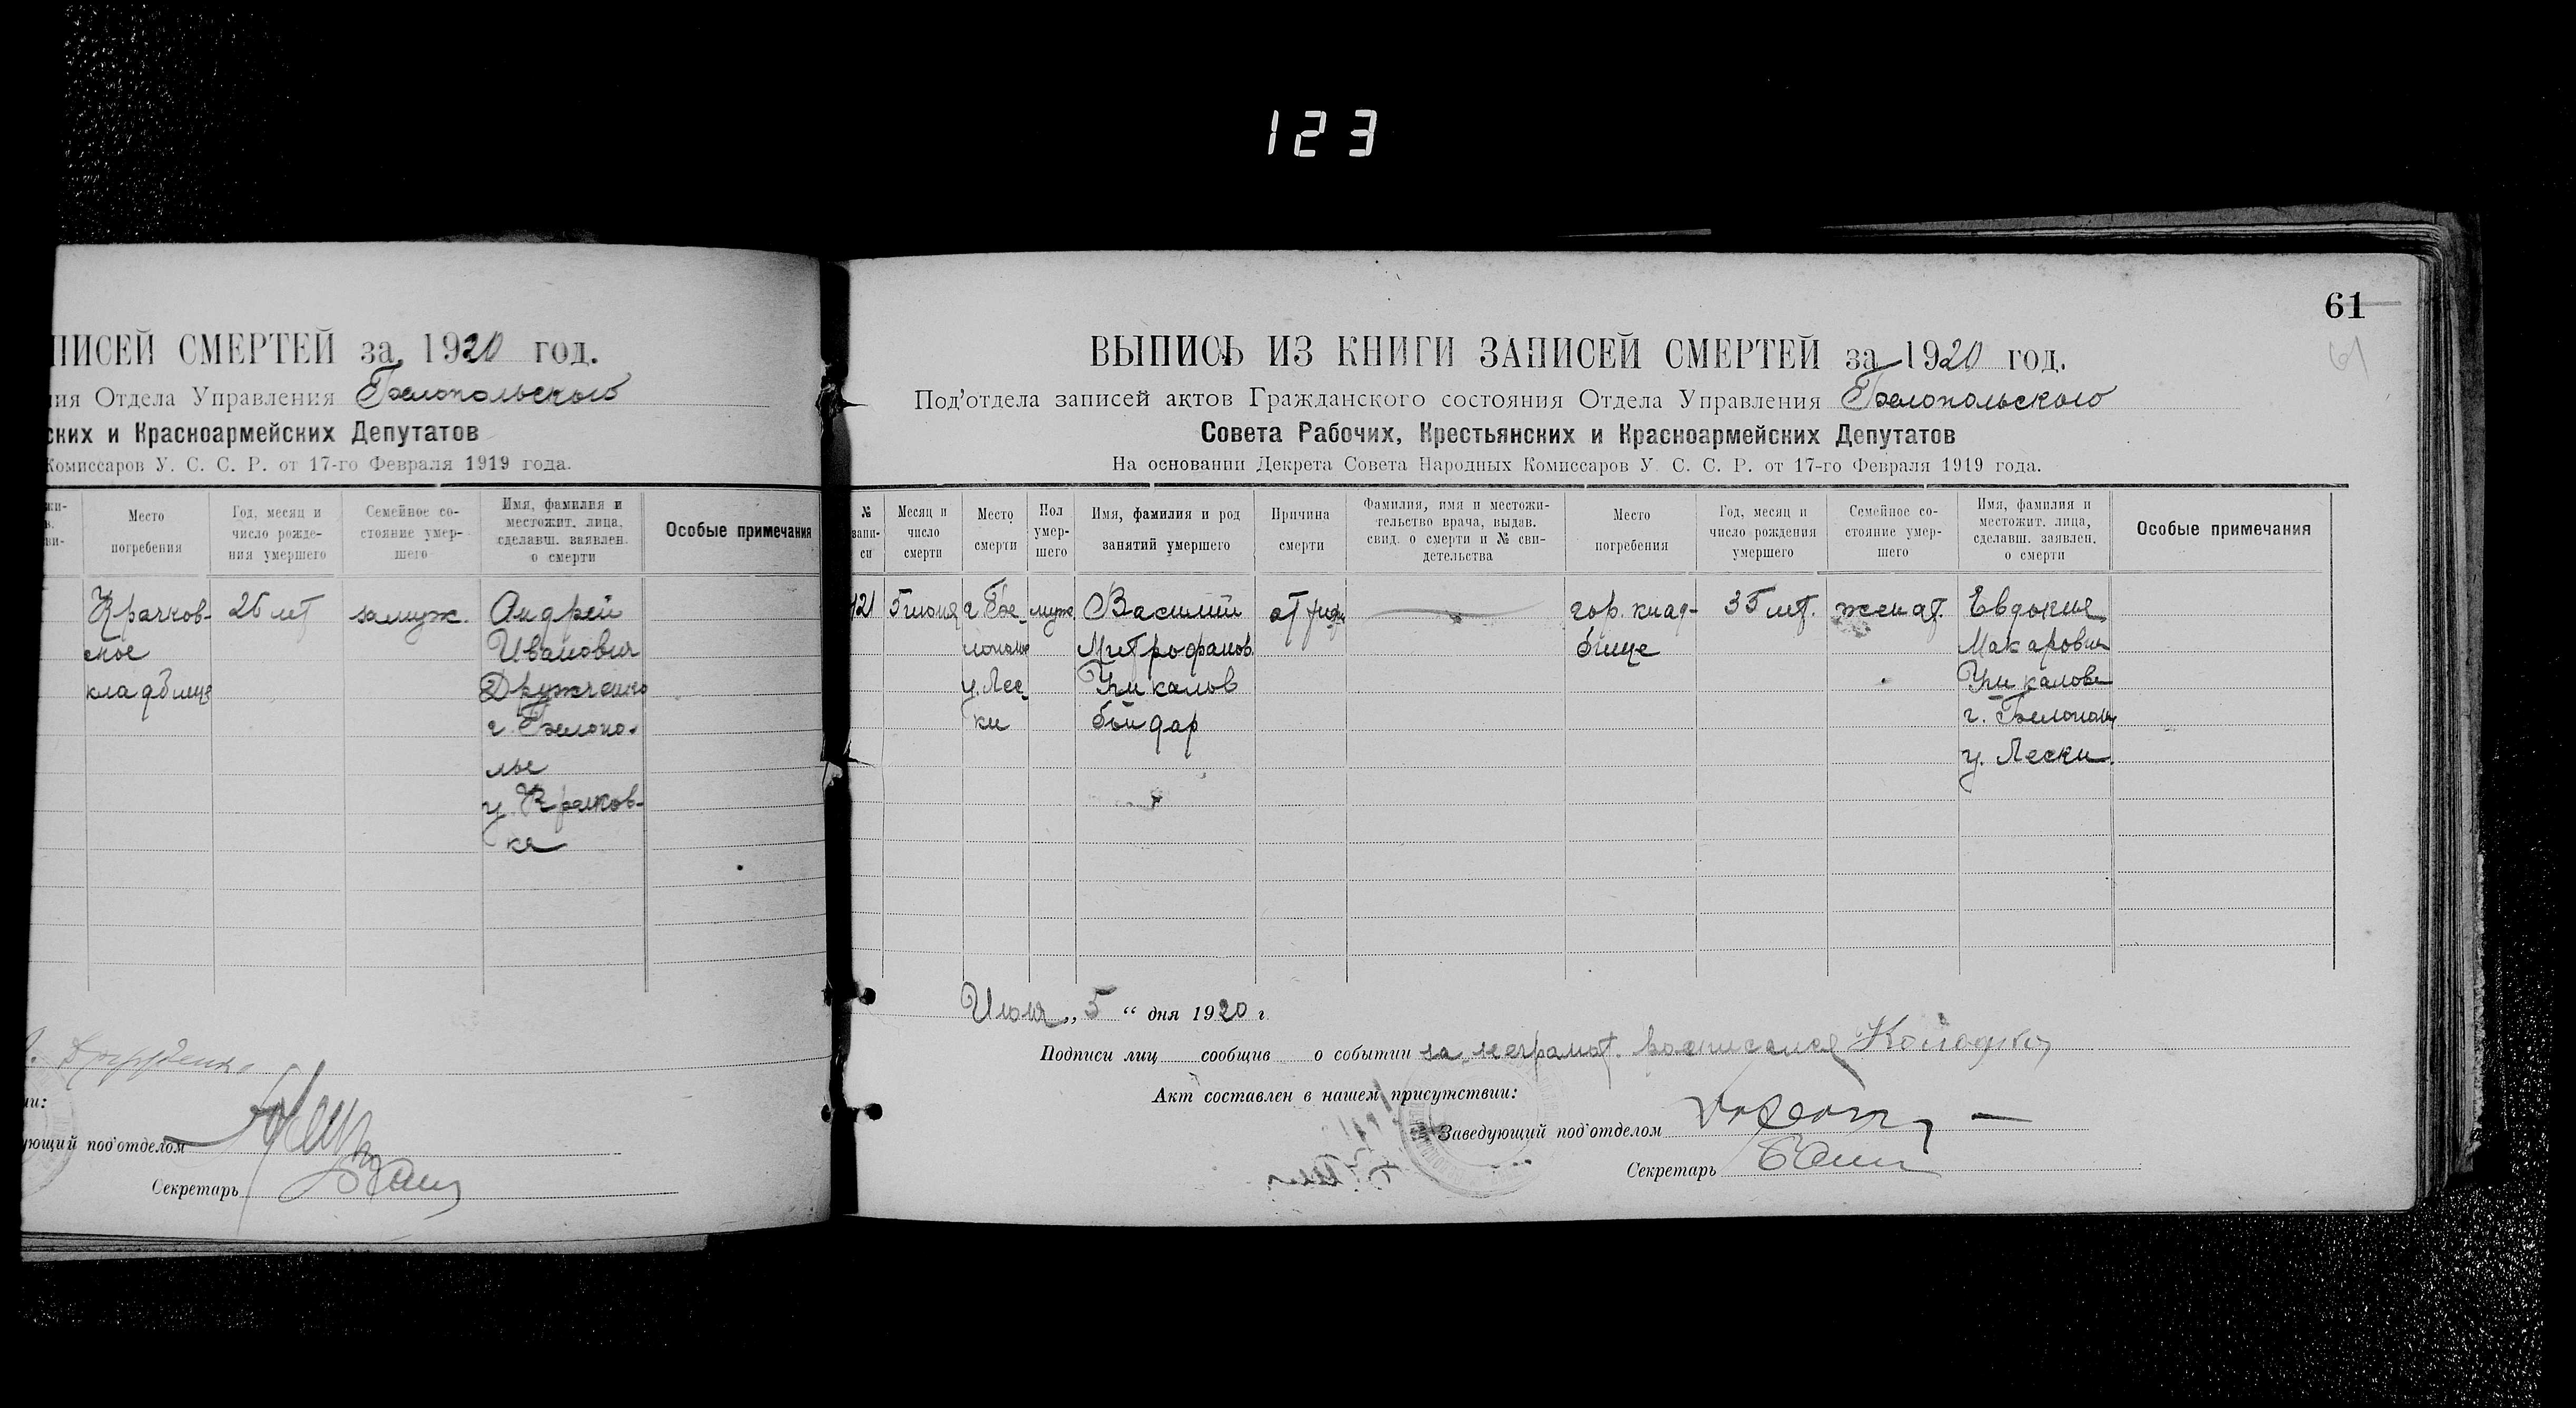 123
ПИСЕЙ СМЕРТЕЙ за 1920 год.
ния Отдела Управления Белопольского
ских и Красноармейских Депутатов
Комиссаров У. С. С. Р. от 17-го Февраля 1919 года.
Место погребения
Год, месяц и число рожде-ния умершего
Семейное со-стояние умер-шего
Имя, фамилия и местожит. лица, сделавш. заявлен. о смерти
Особые примечания
Крачков-
ское
кладбище
26 лет
замуж.
Андрей
Иванович
г. Белопо-
лье
у.
ка
ии:
ующий под'отделом
Секретарь
61
61
ВЫПИСЬ ИЗ КНИГИ ЗАПИСЕЙ СМЕРТЕЙ за 1920 год.
Под'отдела записей актов Гражданского состояния Отдела Управления Белопольского
Совета Рабочих, Крестьянских и Красноармейских Депутатов
На основании Декрета Совета Народных Комиссаров У. С. С. Р. от 17-го Февраля 1919 года.
№ запи-си
Месяц и число смерти
Место смерти
Пол умер-шего
Имя, фамилия и род занятий умершего
Причина смерти
Фамилия, имя и местожи-тельство врача, выдав. свид. о смерти и № сви-детельства
Место погребения
Год, месяц и число рождения умершего
Семейное со-стояние умер-шего
Имя, фамилия и местожит. лица, сделавш. заявлен. о смерти
Особые примечания
121
5 июня
г. Бе-
лополье
у. Лес-
ки
муж.
Василий
Митрофанов
Чикалов
бондар
от
гор. клад-
бище
35 лет.
женат.
Евдокия
Макаровна
Чикалова
г. Белополье
у. Лески.
Июня „5“ дня 1920 г.
Подписи лиц сообщив о событии за неграмот. расписался
Акт составлен в нашем присутствии:
Заведующий под'отделом
Секретарь